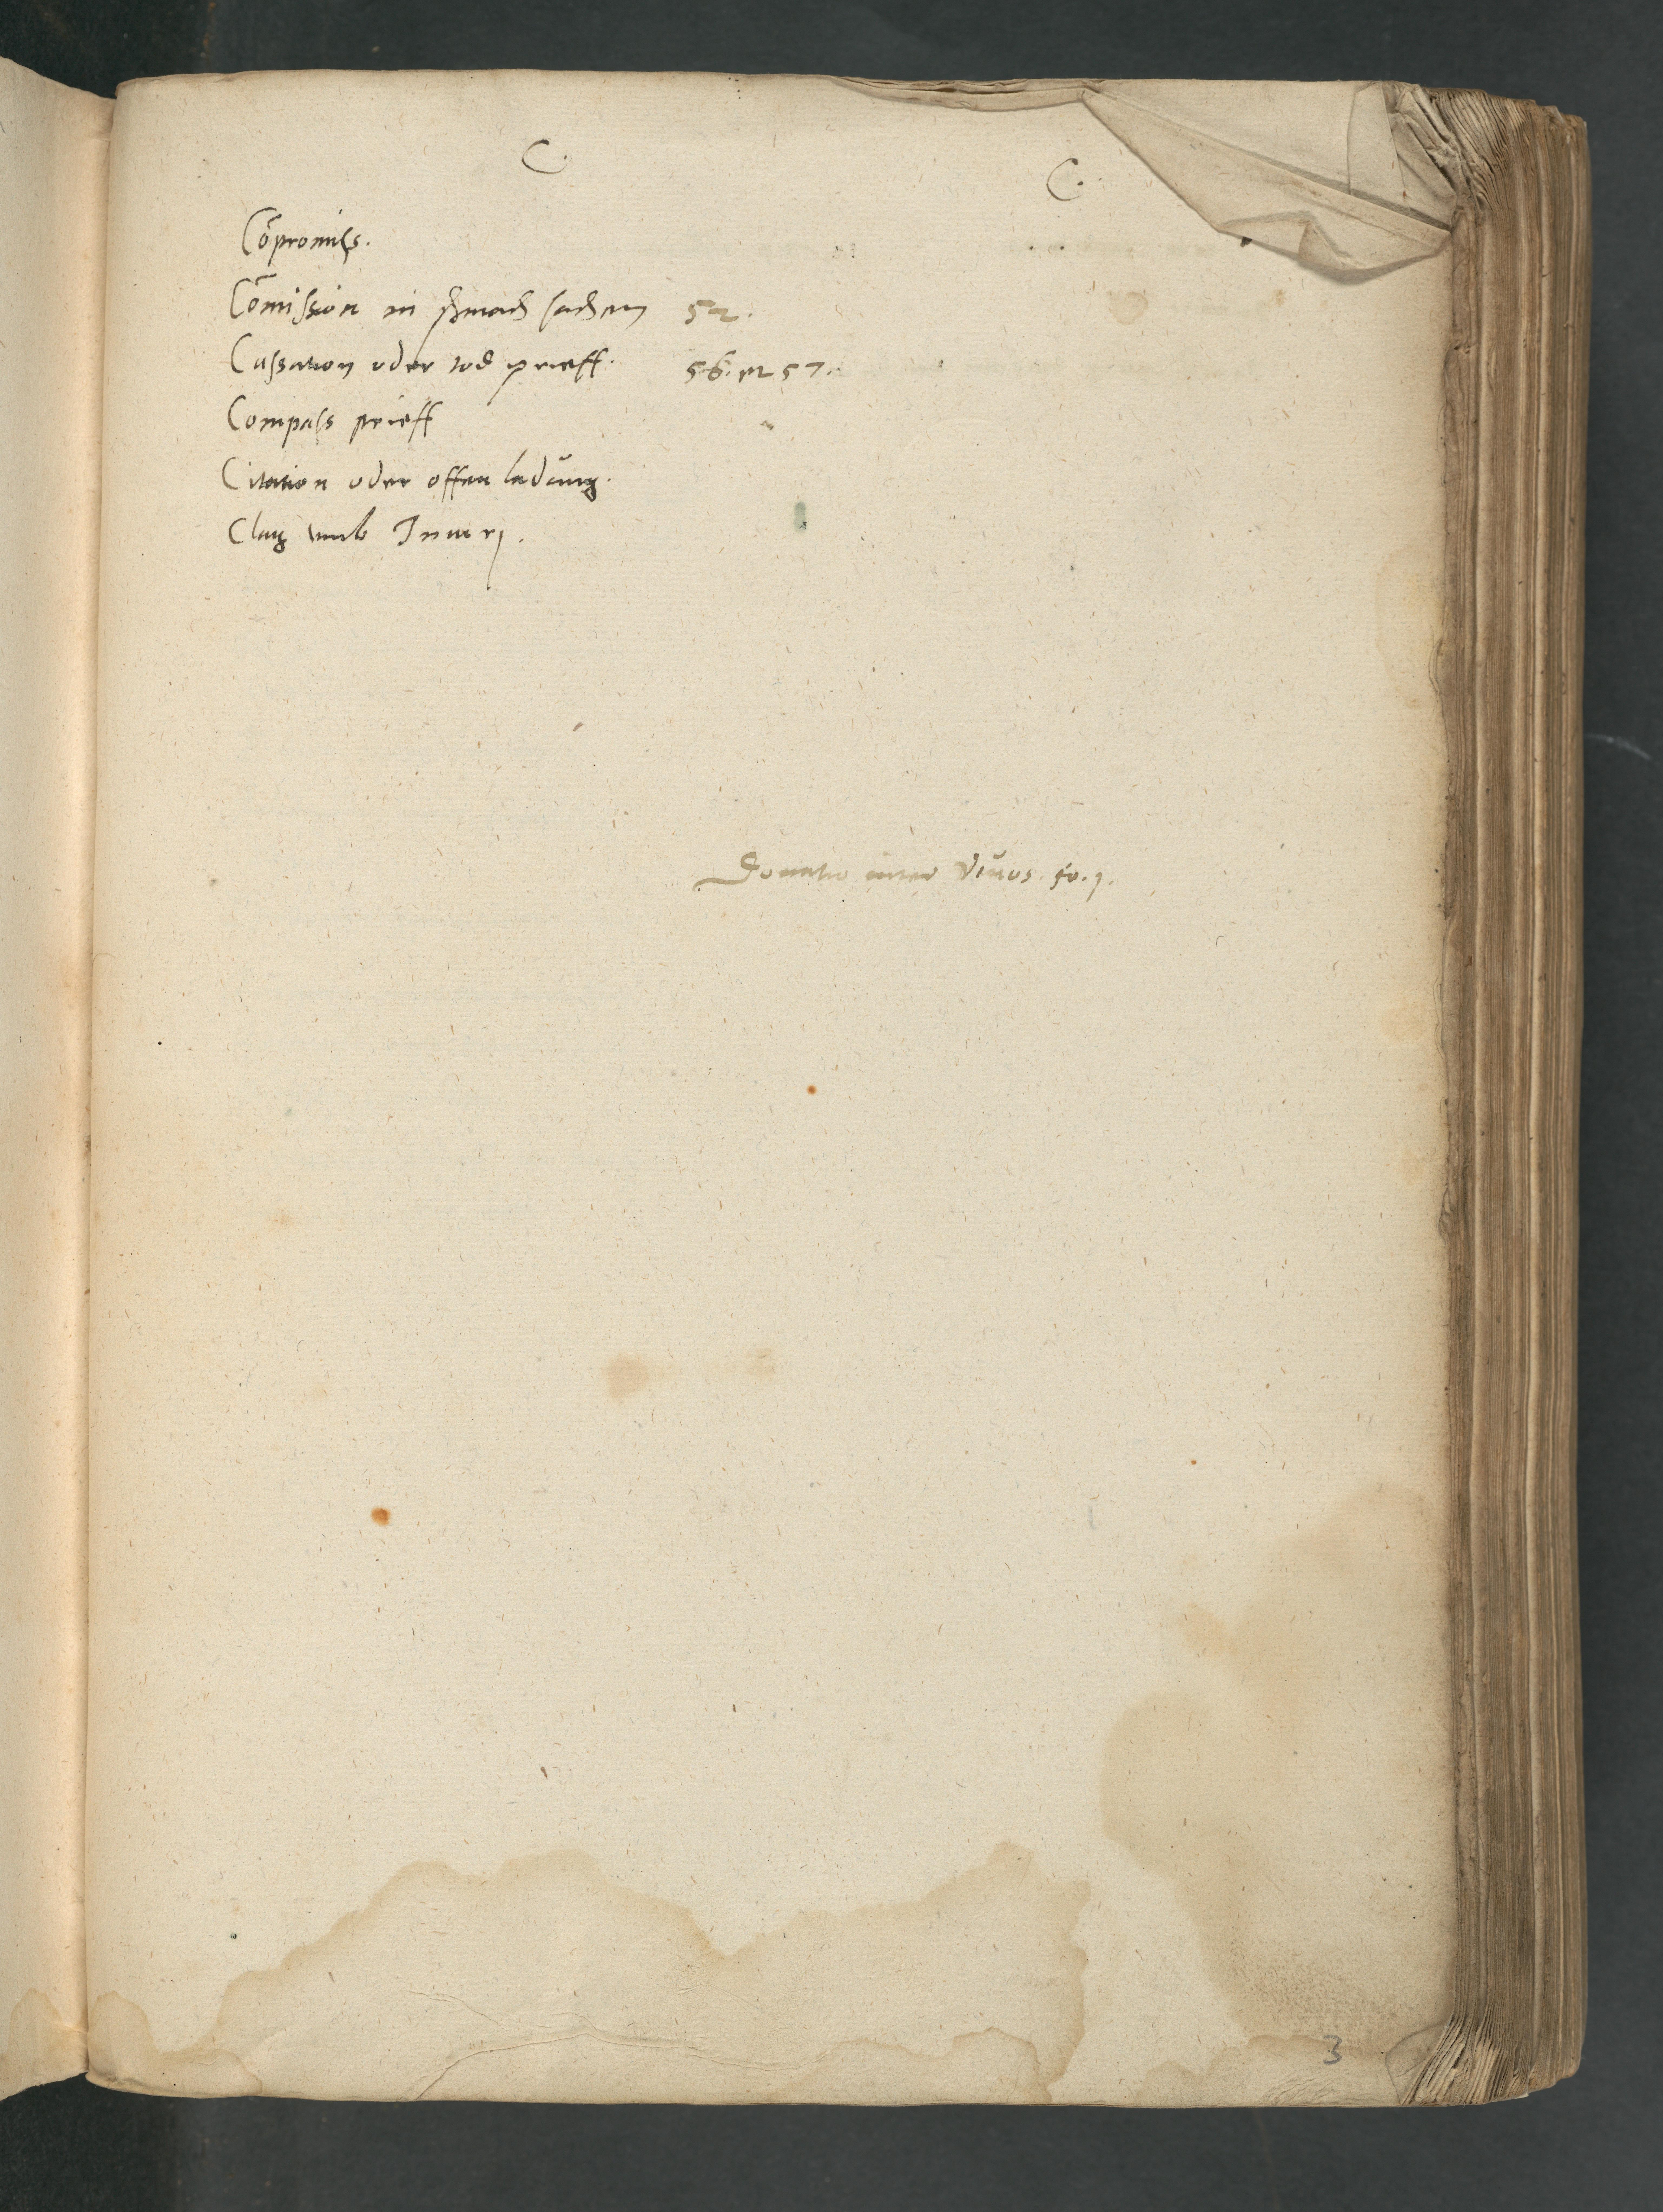 C.
C.
Cōpromiss.
Cōmission in schmach sachen 52.
Cassation oder tod prieff. 56. et 57.
Compass prieff
Citation oder offen ladung.
Clag umb Iniurj.
Donatio inter viuos. fo. j.
3